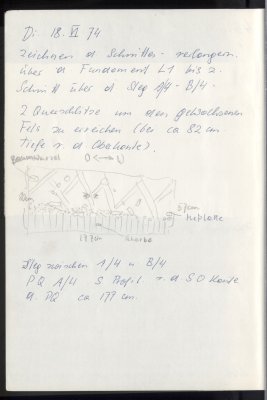 Di. 18. VI 74
zeichnen d Schnittes - verlängern
über d Fundament L1 bis z.
Schnitt über d Steg 1/4 - B/4 -
2 Querschlitze um den gewachsenen
Fels zu erreichen (bei ca 82 cm
Tiefe v. d Oberkante).
Baumwurzel
O ↔ W
177cm
Steg zwischen 1/4 u B/4
PQ A/4 S Profil v. d SO Kante
d. PQ ca 177 cm.